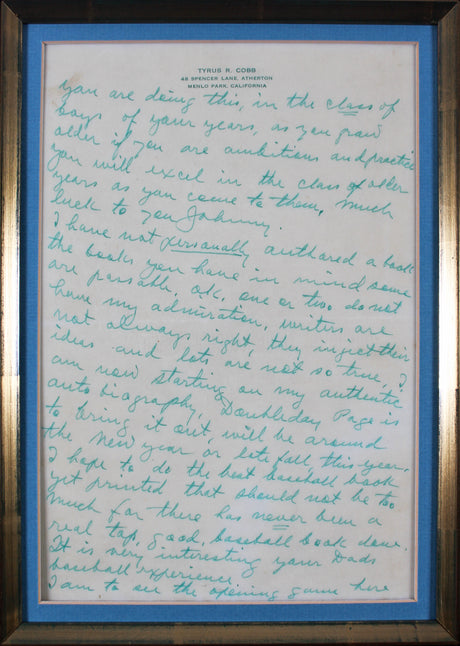 TYRUS R. COBB
48 SPENCER LANE, ATHERTON
MENLO PARK, CALIFORNIA
you are doing this, in the class of
boys of your years, as you grow
older if you are ambitious and practice
you will excel in the class of older
years as you come to them, much
luck to you Johnny.
I have not personally authored a book
the books you have in mind some
are passable, O.K. one or two do not
have my admiration, writers are
not always right, they inject their
ideas and lots are not so true, I
am now starting on my authentic
auto biography, Doubleday Page is
to bring it out, will be around
the New year or late fall, this year.
I hope to do the best baseball book
yet printed that should not be too
much for there has never been a
real top, good, baseball book done.
It is very interesting your Dads
baseball experience.
I am to see the opening game here